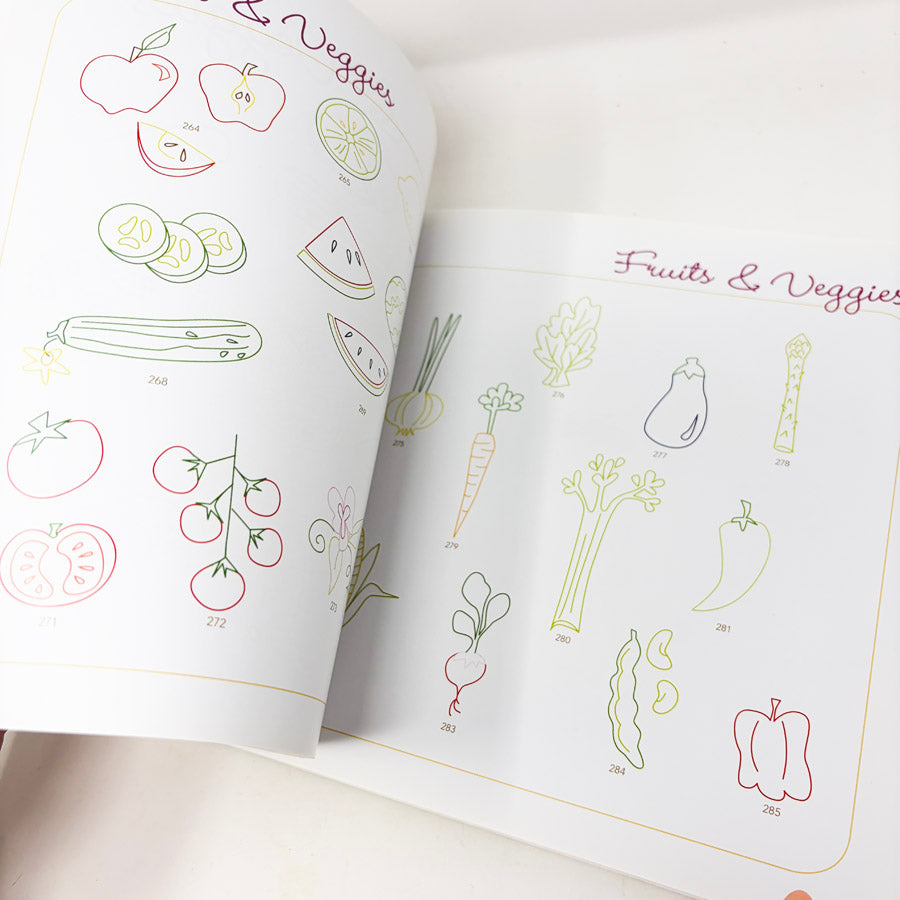 & Veggies
264
265
268
269
271
272
273
Fruits & Veggies
275
276
277
278
279
280
281
283
284
285